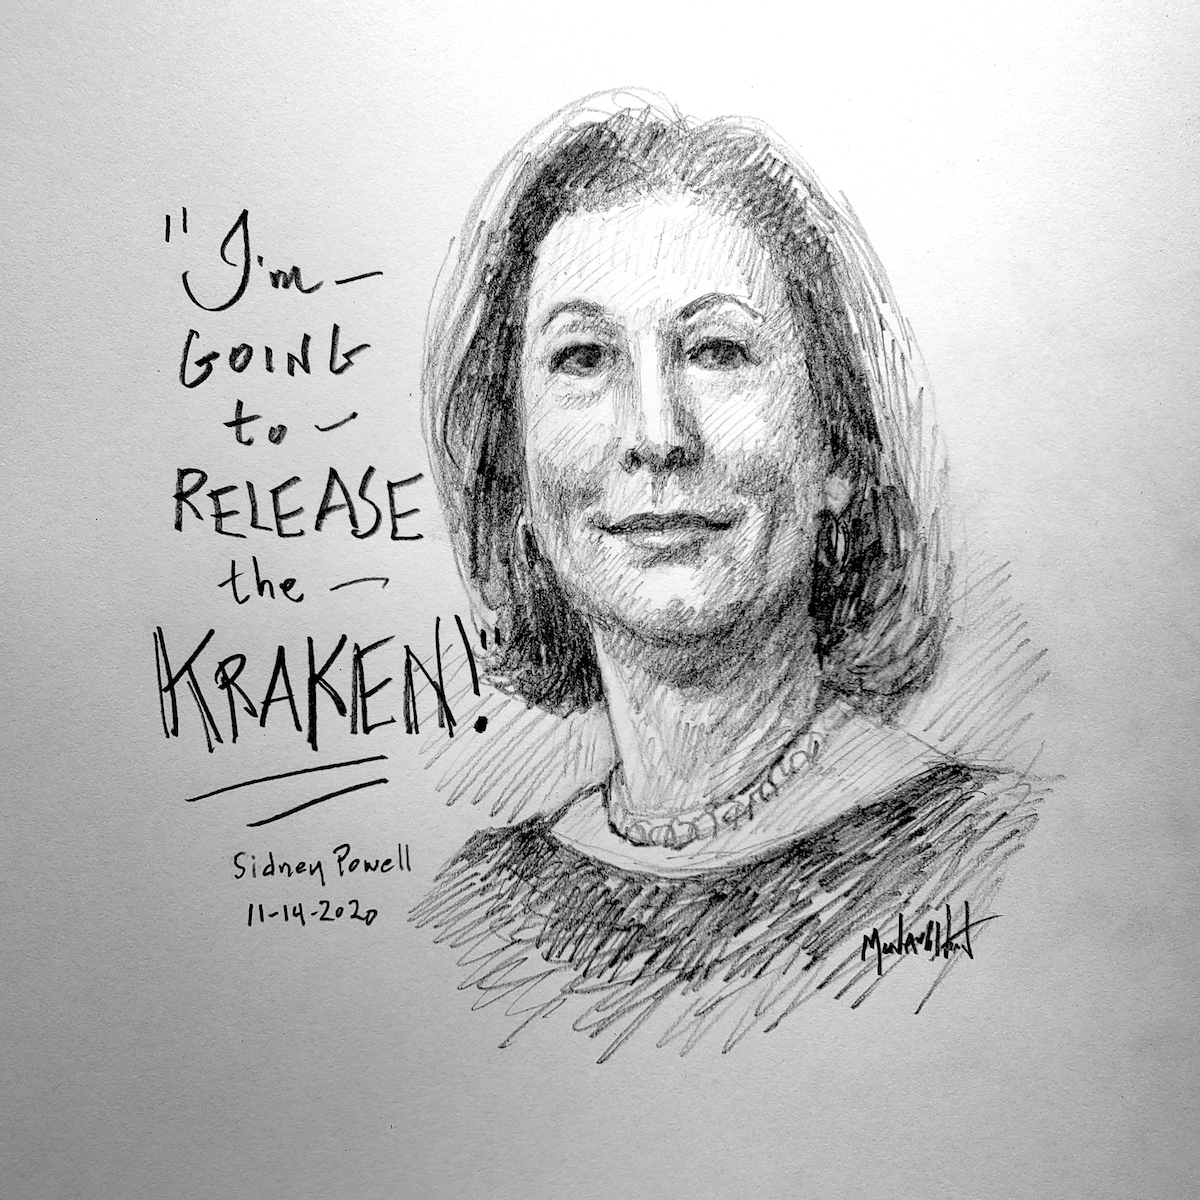 "I'm—
GOING
to—
RELEASE
the—
KRAKEN!"
Sidney Powell
11-14-2020